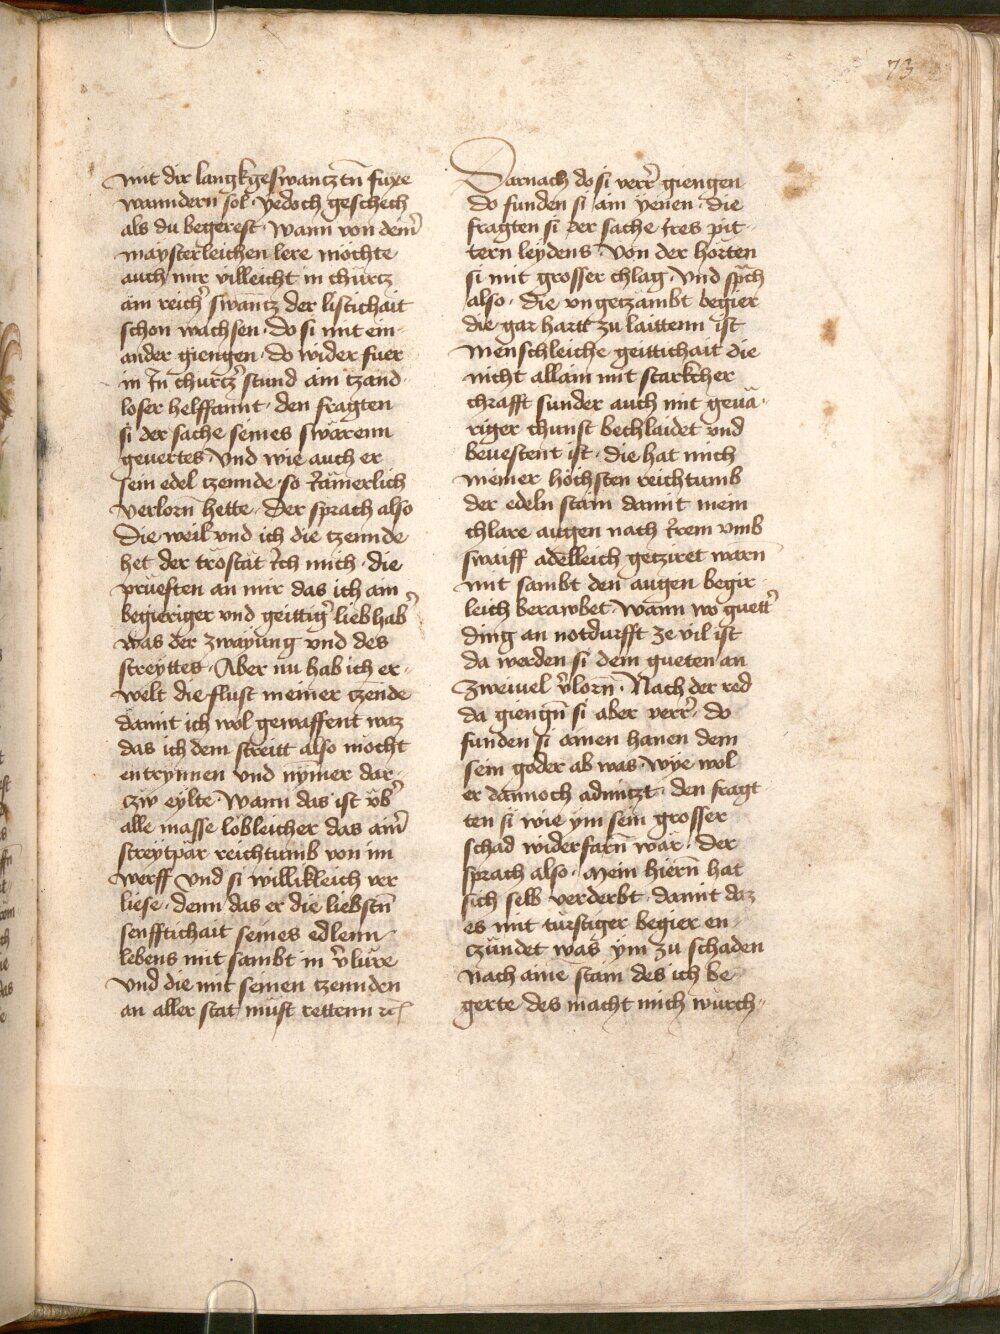 73
mit dir langkgeswancztn̄ fuxe
wanndern sol · yedoch geschech
als du begerest · wann von dem̉
maysterleichen lere möchte
auch mir villeicht in chürcz
ain reicher̉ swantz der listichait
schon wachsen · do si mit ein
ander giengen · do wider fuer
in In̄ churcz̉ stund ain tzand
loser helffannt · den fragten
si der sache seines swärenn
geuertes Vnd wie auch er
sein edel tzennde so Iämerlich
verlorn̄ hette · Der sprach also
Die weil vnd ich die tzennde
het der tröstät Ich mich · die
prueften an mir das ich ain
begieriger vnd geittig̉ liebhab̉
was der zwayüng vnd des
streyttes · Aber nu hab ich er-
welt die flust meiner tzende
damit ich wol gewaffent waz
das ich dem streitt also mocht
entrynnen vnd nymer dar-
czw eylte · Wann das ist vb̉
alle masse lobleicher das aim̉
streytpär reichtumb von im
werff vnd si willikleich ver
liese · denn das er die liebstn̄
senfftichait seines edlenn
lebens mit sambt in v̉lüre
vnd die mit seinen tzennden
an aller stat müst rettenn ꝛcꝭ
Darnach do si verr̉ giengen
do funden si ain yenen · die
fragten si der sache Ires pit-
tern leydens · Von der hörten
si mit grosser chlag · Vnd sp̄ch
also · die vngetzämbt begier
die gar hartt zu laittenn ist
menschleiche geittichait die
nicht allain mit starkcher
chrafft sunder auch mit geuä-
riger chunst bechlaidet vnd
beuestent ist · die hat mich
meiner höchsten reichtumb
der edeln stäm damit mein
chlare augen nach Irem vmb
swaiff adelleich getziret warn̄
mit sambt den augen begir-
leich berawbet · Wann wo guett̉
ding an notdurfft ze vil ist
da werden si dem gueten an
zweiuel v̉lorn̄ · Nach der red
da giengn̄ si aber verr̉ · do
funden si ainen hanen dem
sein goder ab was · wye wol
er dannoch adnützt · den fragt
ten si wie ym sein grosser
schad widerfarn̄ wär · Der
sprach also · Mein hiern̄ hat
sich selb verderbt · damit daz
es mit türstiger begier en-
czündet was ym zu schaden
nach aine stam des ich be-
gerte des macht mich würch-